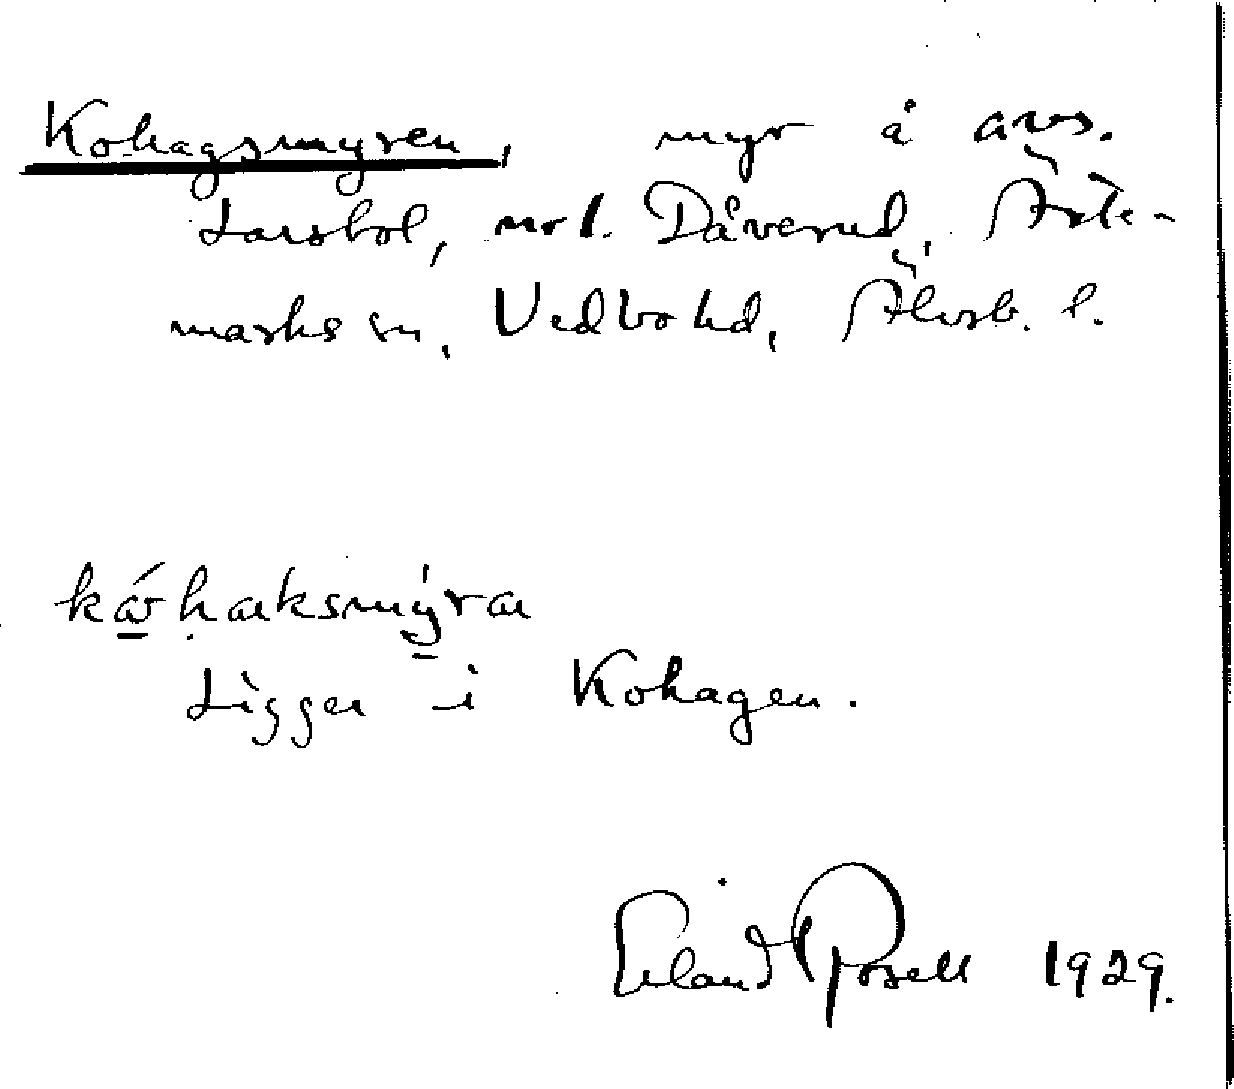 Kohagsmyren, myr å avs.
Larsbol, nrl. Dåverud, Ärte-
marks sn, Vedbo hd, Älvsb. l.
kóhaksmýra
Ligger i Kohagen.
Erland Rosell 1929.